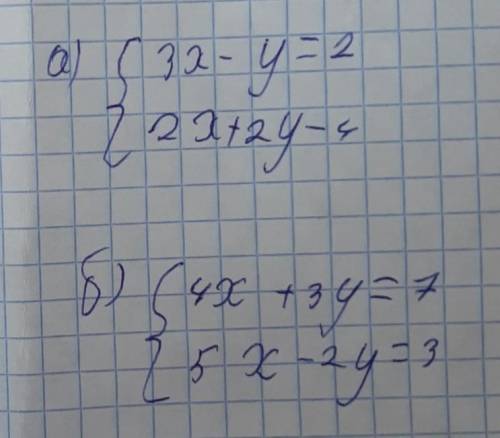 а) { 3x - y = 2
2x + 2y - 4
б) { 4x + 3y = 7
5 x - 2y = 3